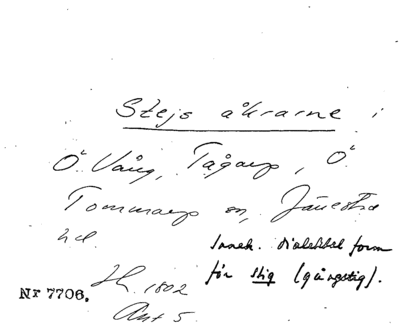 Stejs åkrarne i
Ö. Vång, Tågarp, Ö.
Tommarp sn, Järrestad
hd.
Inneh. dialektal form
för stig (gångstig).
Nr 7706.
1802
Akt 5